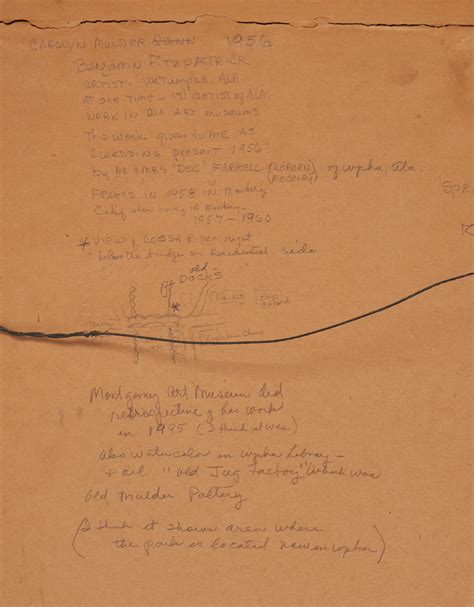 CAROLYN MULDER QUINN 1956
BENJAMIN FITZPATRICK
ARTIST - WETUMPKA, ALA.
AT ONE TIME - 1st ARTIST of ALA.
WORK IN ALA ART MUSEUMS
This WORK given to me as
a WEDDING present 1956
by MR & MRS "DOC" FARRELL (LOREEN) of Wpka, Ala.
MOSELEY
FRAMED IN 1958 in Monterey
Calif when living in Monterey
1957-1960
* VIEW of COOSA River right
below the bridge on residential side
old
DOCKS
Montgomery Art Museum did
retrospective of his work
in 1995 (I think it was)
also watercolor in Wpka Library -
+ oil "old Jug Factory" which was
old Mulder Pottery
(I think it shows area where
the park is located now in Wpka)